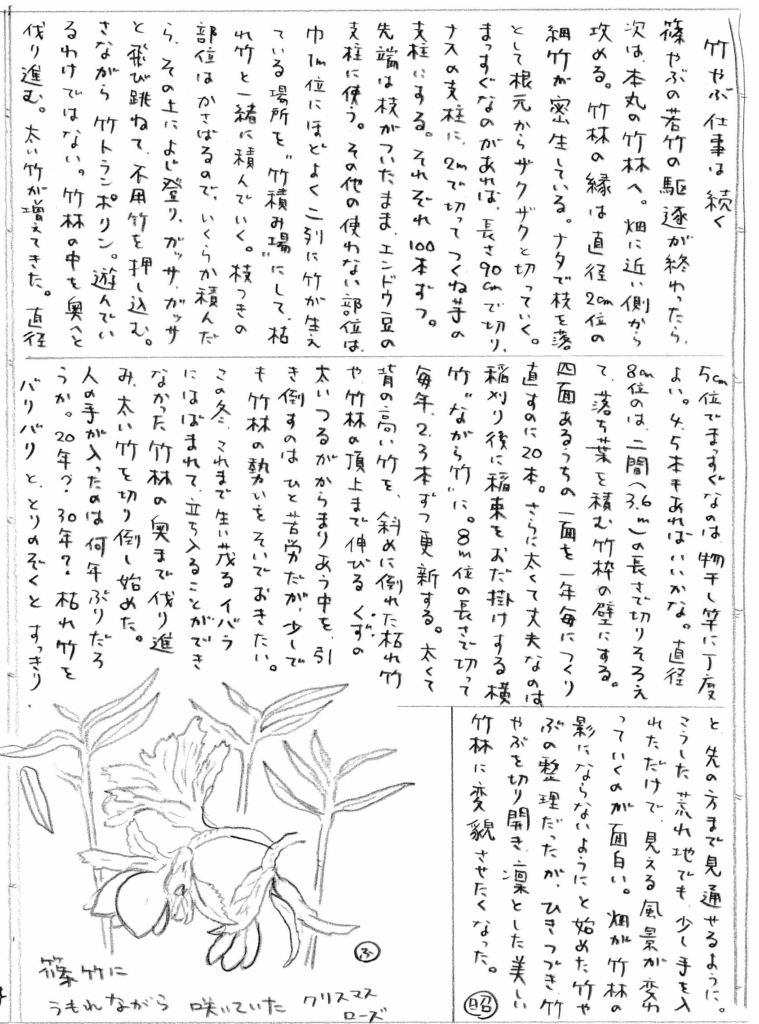 竹やぶ仕事は続く
篠やぶの若竹の駆逐が終わったら、
次は、本丸の竹林へ。畑に近い側から
攻める。竹林の縁は直径2cm位の
細竹が密生している。ナタで枝を落
として根元からザクザクと切っていく。
まっすぐなのがあれば、長さ90cmで切り、
ナスの支柱に、2mで切ってつくね芋の
支柱にする。それぞれ100本ずつ。
先端は枝がついたまま、エンドウ豆の
支柱に使う。その他の使わない部位は、
巾1m位にほどよく二列に竹が生え
ている場所を〝竹積み場〟にして、枯
れ竹と一緒に積んでいく。枝つきの
部位はかさばるので、いくらか積んだ
ら、その上によじ登り、ガッサ、ガッサ
と飛び跳ねて、不用竹を押し込む。
さながら竹トランポリン。遊んでい
るわけではない。竹林の中を奥へと
伐り進む。太い竹が増えてきた。直径
5cm位でまっすぐなのは物干し竿に丁度
よい。4、5本もあればいいかな。直径
8cm位のは、二間(3.6m)の長さで切りそろえ
て、落ち葉を積む竹枠の壁にする。
四面あるうちの一面を一年毎につくり
直すのに20本。さらに太くて丈夫なのは
稲刈り後に稲束をおだ掛けする横
竹〝ながら竹〟に。8m位の長さで切って
毎年、2、3本ずつ更新する。太くて
背の高い竹を、斜めに倒れた枯れ竹
や、竹林の頂上まで伸びるくずの
太いつるがからまりあう中を、引
き倒すのはひと苦労だが、少しで
も竹林の勢いをそいでおきたい。
この冬、これまで生い茂るイバラ
にはばまれて、立ち入ることができ
なかった竹林の奥まで伐り進
み、太い竹を切り倒し始めた。
人の手が入ったのは何年ぶりだろ
うか。20年?30年?枯れ竹を
バリバリと、とりのぞくとすっきり、
と、先の方まで見通せるように。
こうした荒れ地でも、少し手を入
れただけで、見える風景が変わ
っていくのが面白い。畑が竹林の
影にならないようにと始めた竹や
ぶの整理だったが、ひきつづき、竹
やぶを切り開き、凛とした美しい
竹林に変貌させたくなった。
昭
ふ
篠竹に
うもれながら 咲いていた クリスマス
ローズ